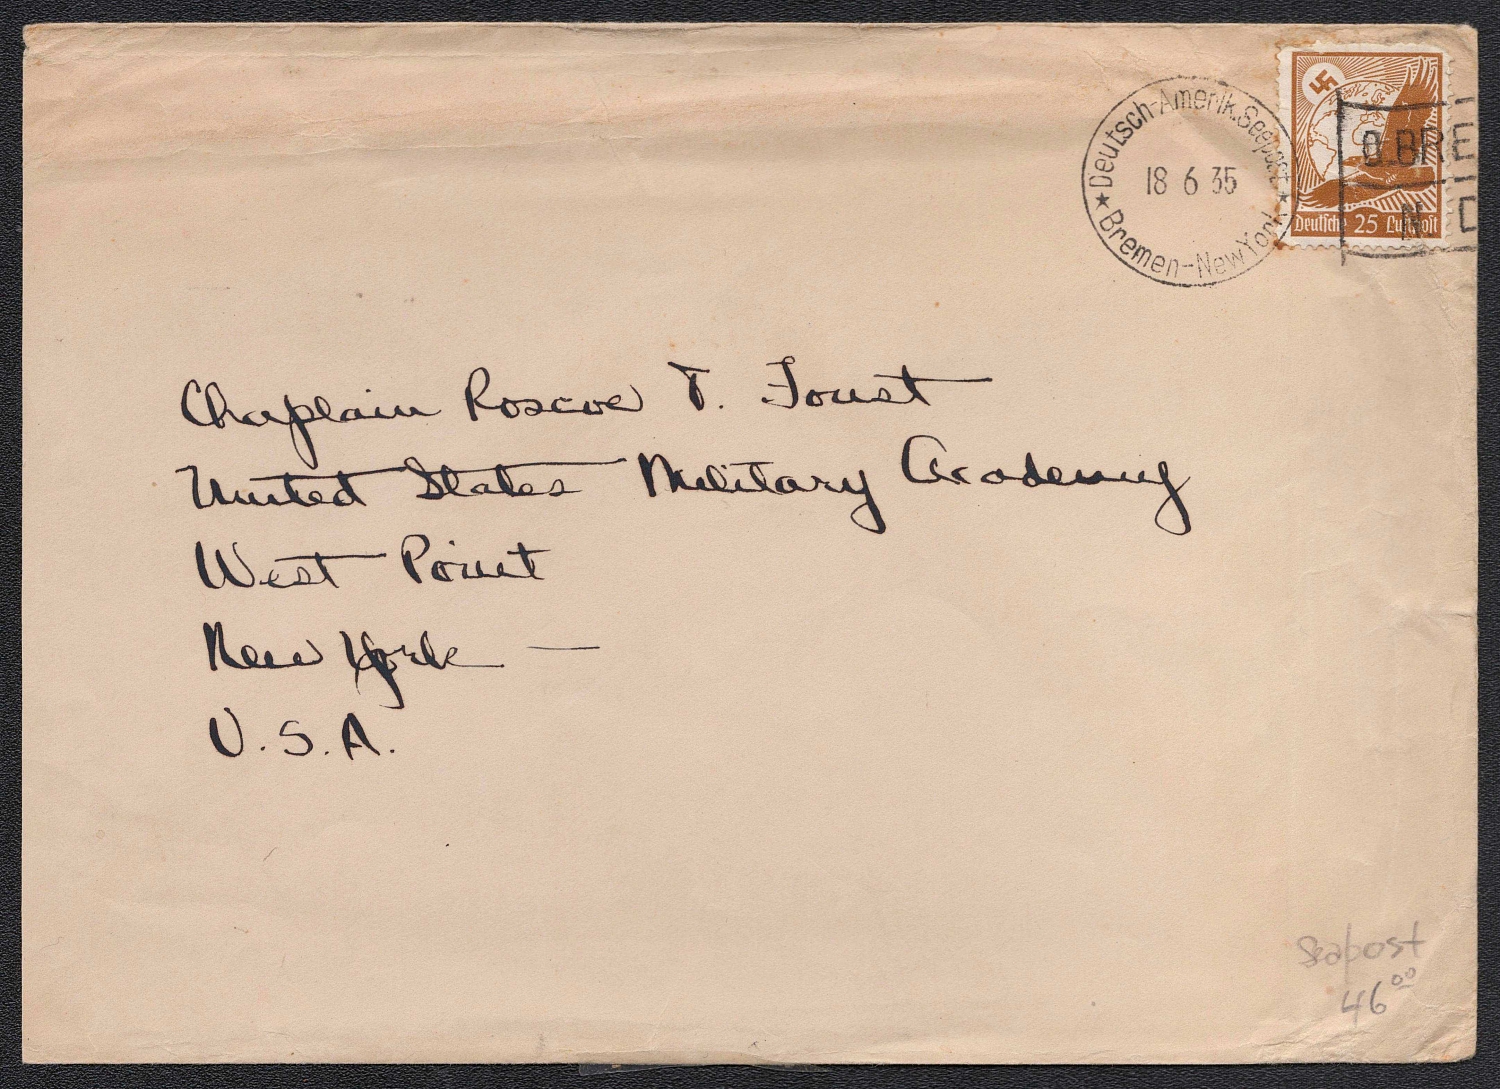 Deutsch-Amerik. Seepost
18 6 35
★ Bremen-New York ★
D. BRE
N. D
Deutsche 25 Luftpost
Chaplain Roscoe T. Foust
United States Military Academy
West Point
New York —
U.S.A.
Seapost
46⁰⁰